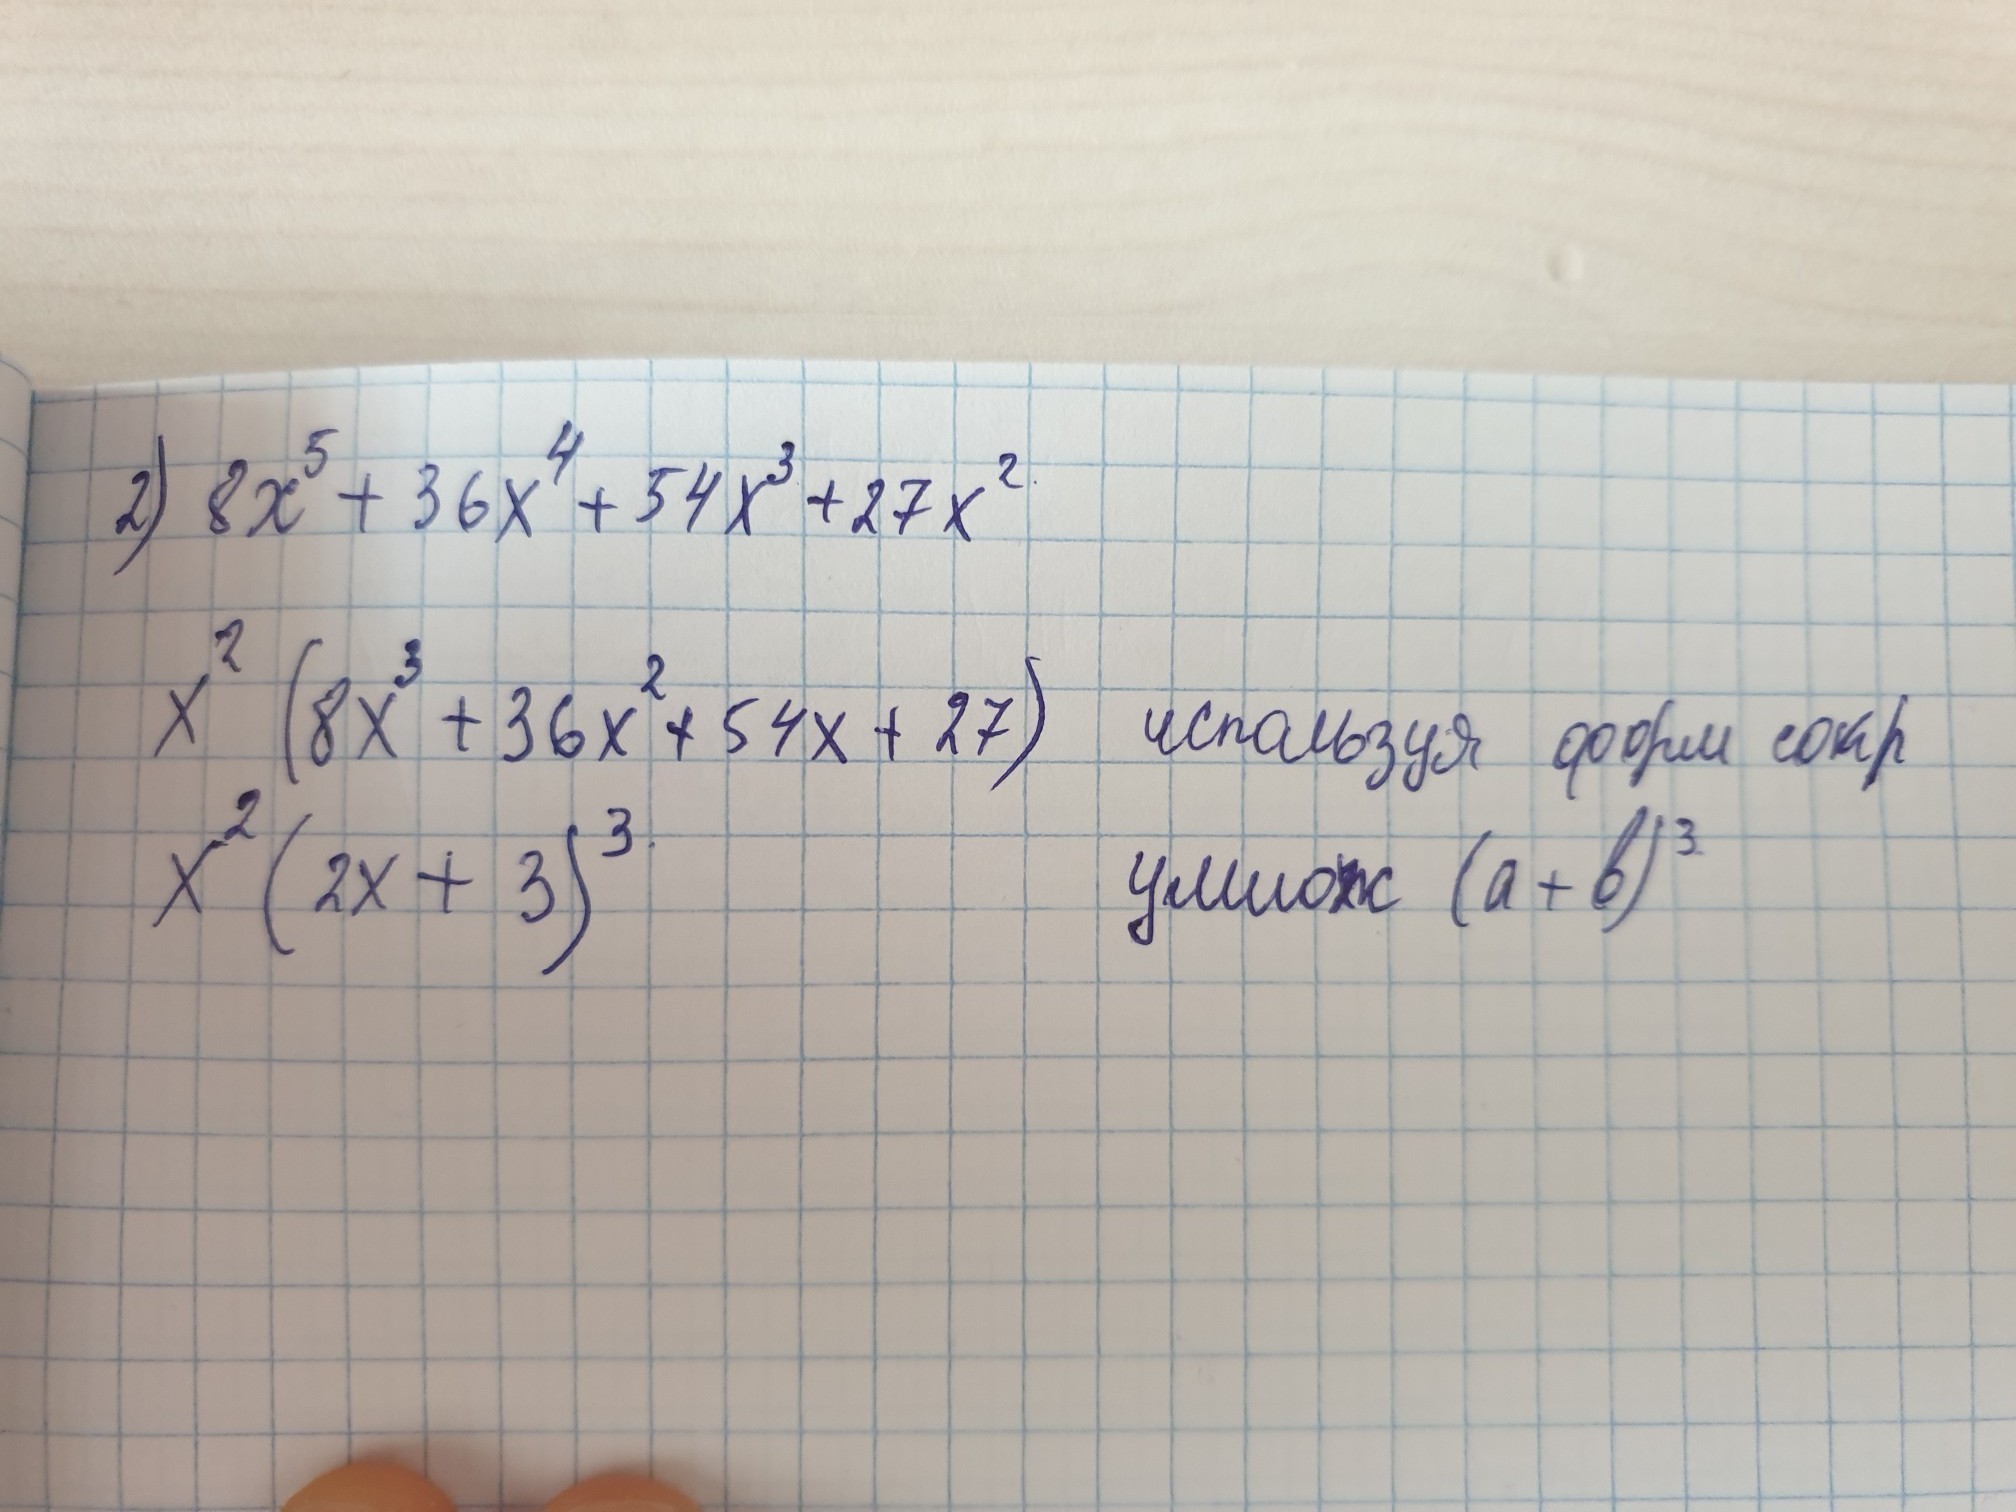 2) 8x⁵ + 36x⁴ + 54x³ + 27x²
x² (8x³ + 36x² + 54x + 27) используя форм сокр
x² (2x + 3)³ умнож (a + b)³